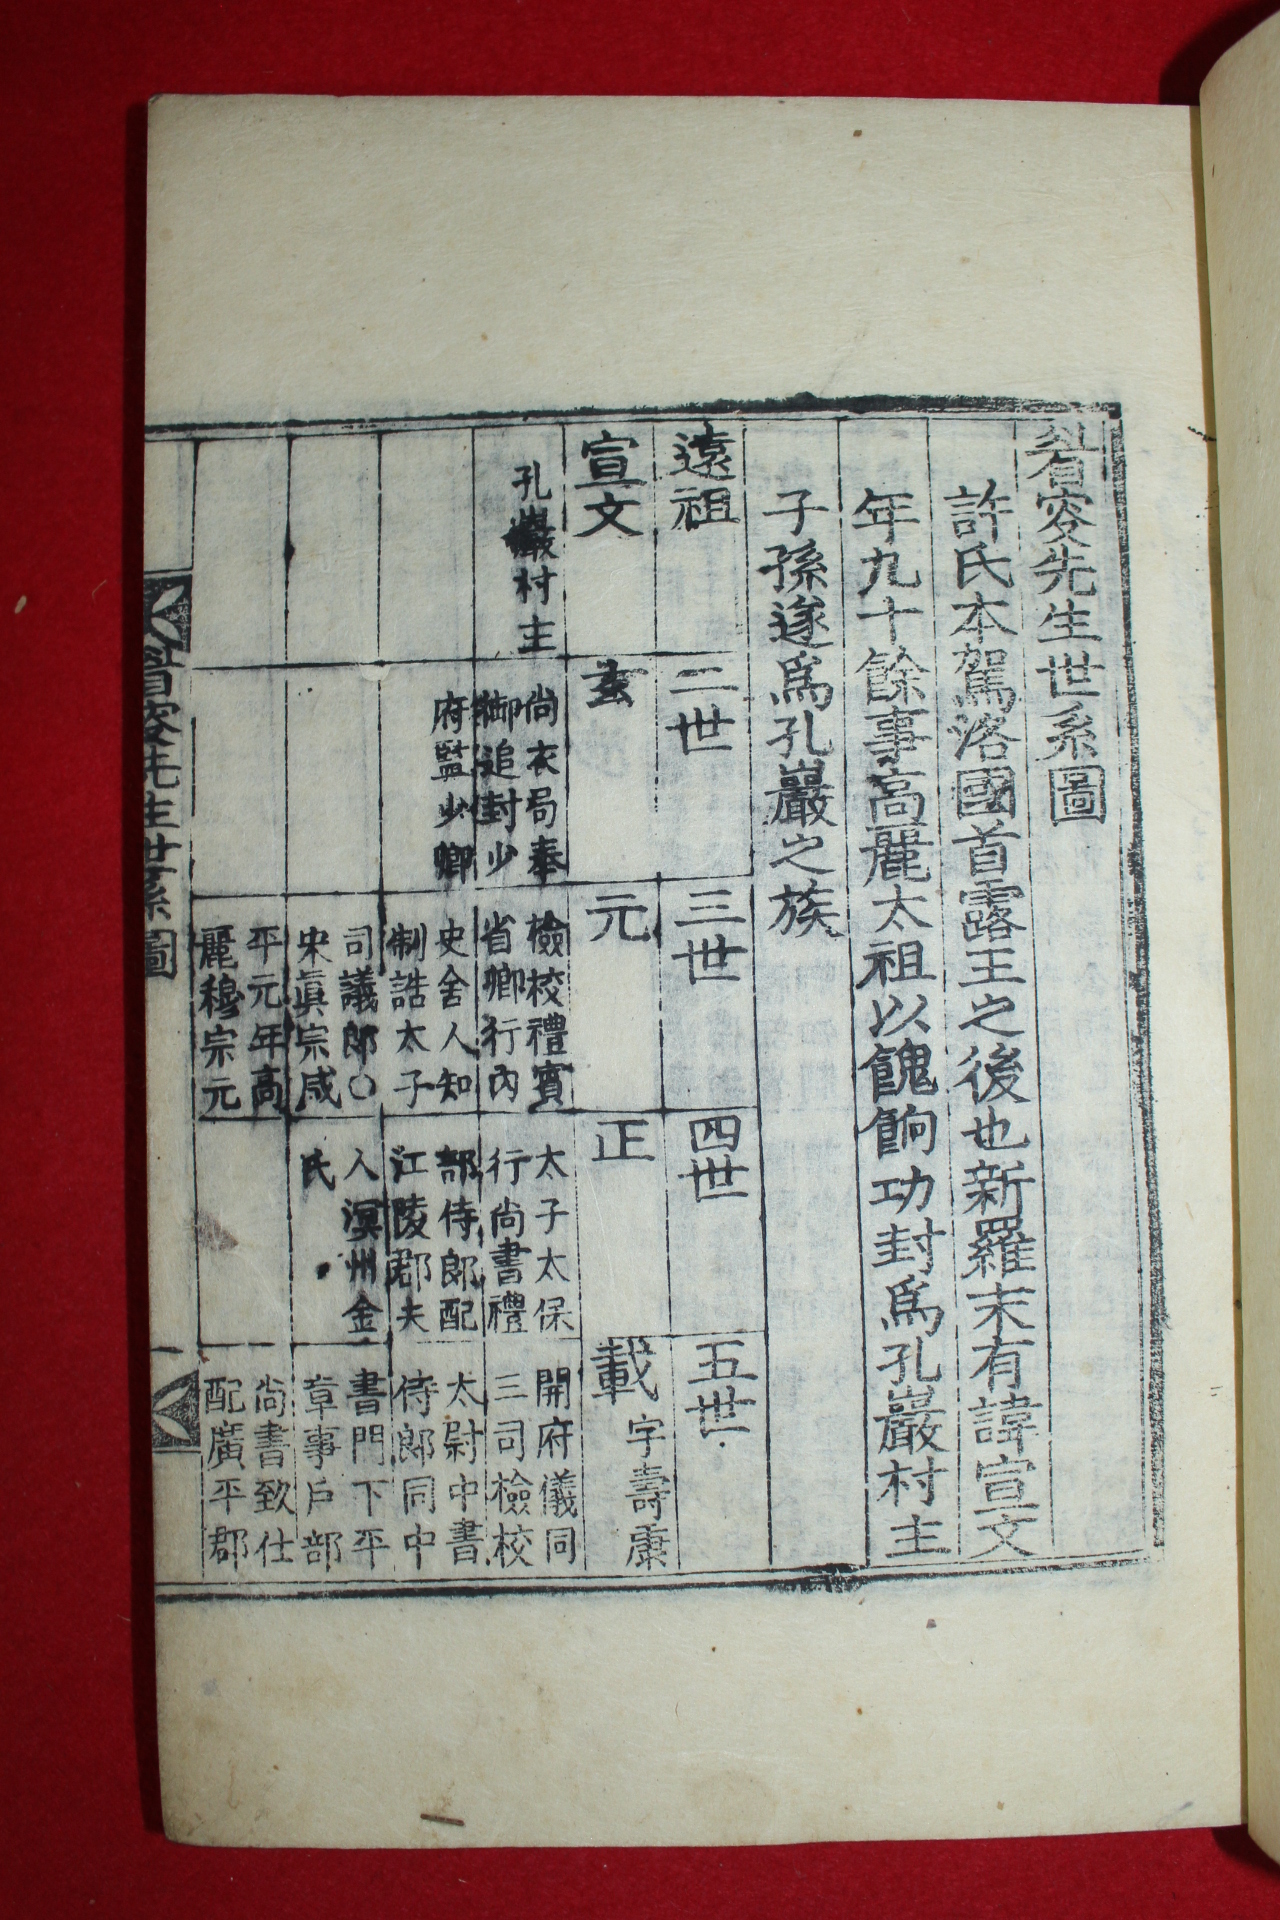 睂叜先生世系圖
許氏本駕洛國首露王之後也新羅末有諱宣文
年九十餘事高麗太祖以餽餉功封爲孔巖村主
子孫遂爲孔巖之族
遠祖
二世
三世
四世
五世
宣文
孔巖村主
玄
尙衣局奉
御追封少
府監少卿
元
檢校禮賓
省卿行內
史舍人知
制誥太子
司議郎○
宋眞宗咸
平元年高
麗穆宗元
正
太子太保
行尙書禮
部侍郎配
江陵郡夫
人溟州金
氏
載 字壽康
開府儀同
三司檢校
太尉中書
侍郎同中
書門下平
章事戶部
尙書致仕
配廣平郡
睂叜先生世系圖